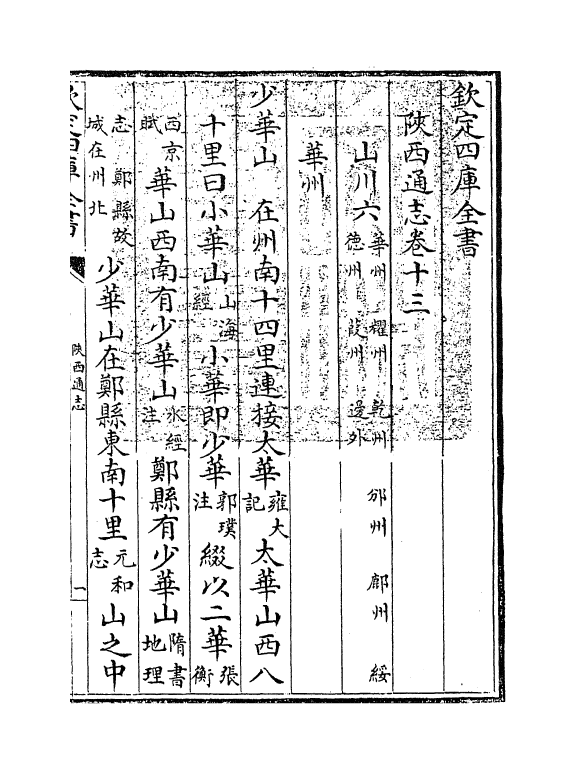 欽定四庫全書
陜西通志卷十三
山川六 華州 耀州 乾州 邠州 鄜州 綏德州 葭州 邊外
華州
少華山 在州南十四里連接大華雍大記太華山西八
十里曰小華山山海經小華即少華郭璞注綴以二華張衡
西京賦華山西南有少華山水經注鄭縣有少華山隋書地理
志 鄭縣故城在州北少華山在鄭縣東南十里元和志山之中
欽定四庫全書
陜西通志
一